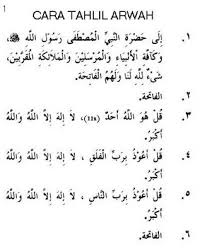 1
CARA TAHLIL ARWAH
١. إِلَى حَضْرَةِ النَّبِيِّ الْمُصْطَفَى رَسُولِ اللَّهِ ﷺ،
وَكَافَّةِ الْأَنْبِيَاءِ وَالْمُرْسَلِينَ وَالْمَلَائِكَةِ الْمُقَرَّبِينَ،
شَيْءٌ لِلَّهِ لَنَا وَلَهُمُ الْفَاتِحَةَ.
٢. الفَاتحة.
٣. قُلْ هُوَ اللَّهُ أَحَدٌ، لَا إِلَهَ إِلَّا اللَّهُ وَاللَّهُ
أَكْبَرُ.
٤. قُلْ أَعُوذُ بِرَبِّ الْفَلَقِ، لَا إِلَهَ إِلَّا اللَّهُ وَاللَّهُ
أَكْبَرُ.
٥. قُلْ أَعُوذُ بِرَبِّ النَّاسِ، لَا إِلَهَ إِلَّا اللَّهُ وَاللَّهُ
أَكْبَرُ.
٦. الفَاتحة.